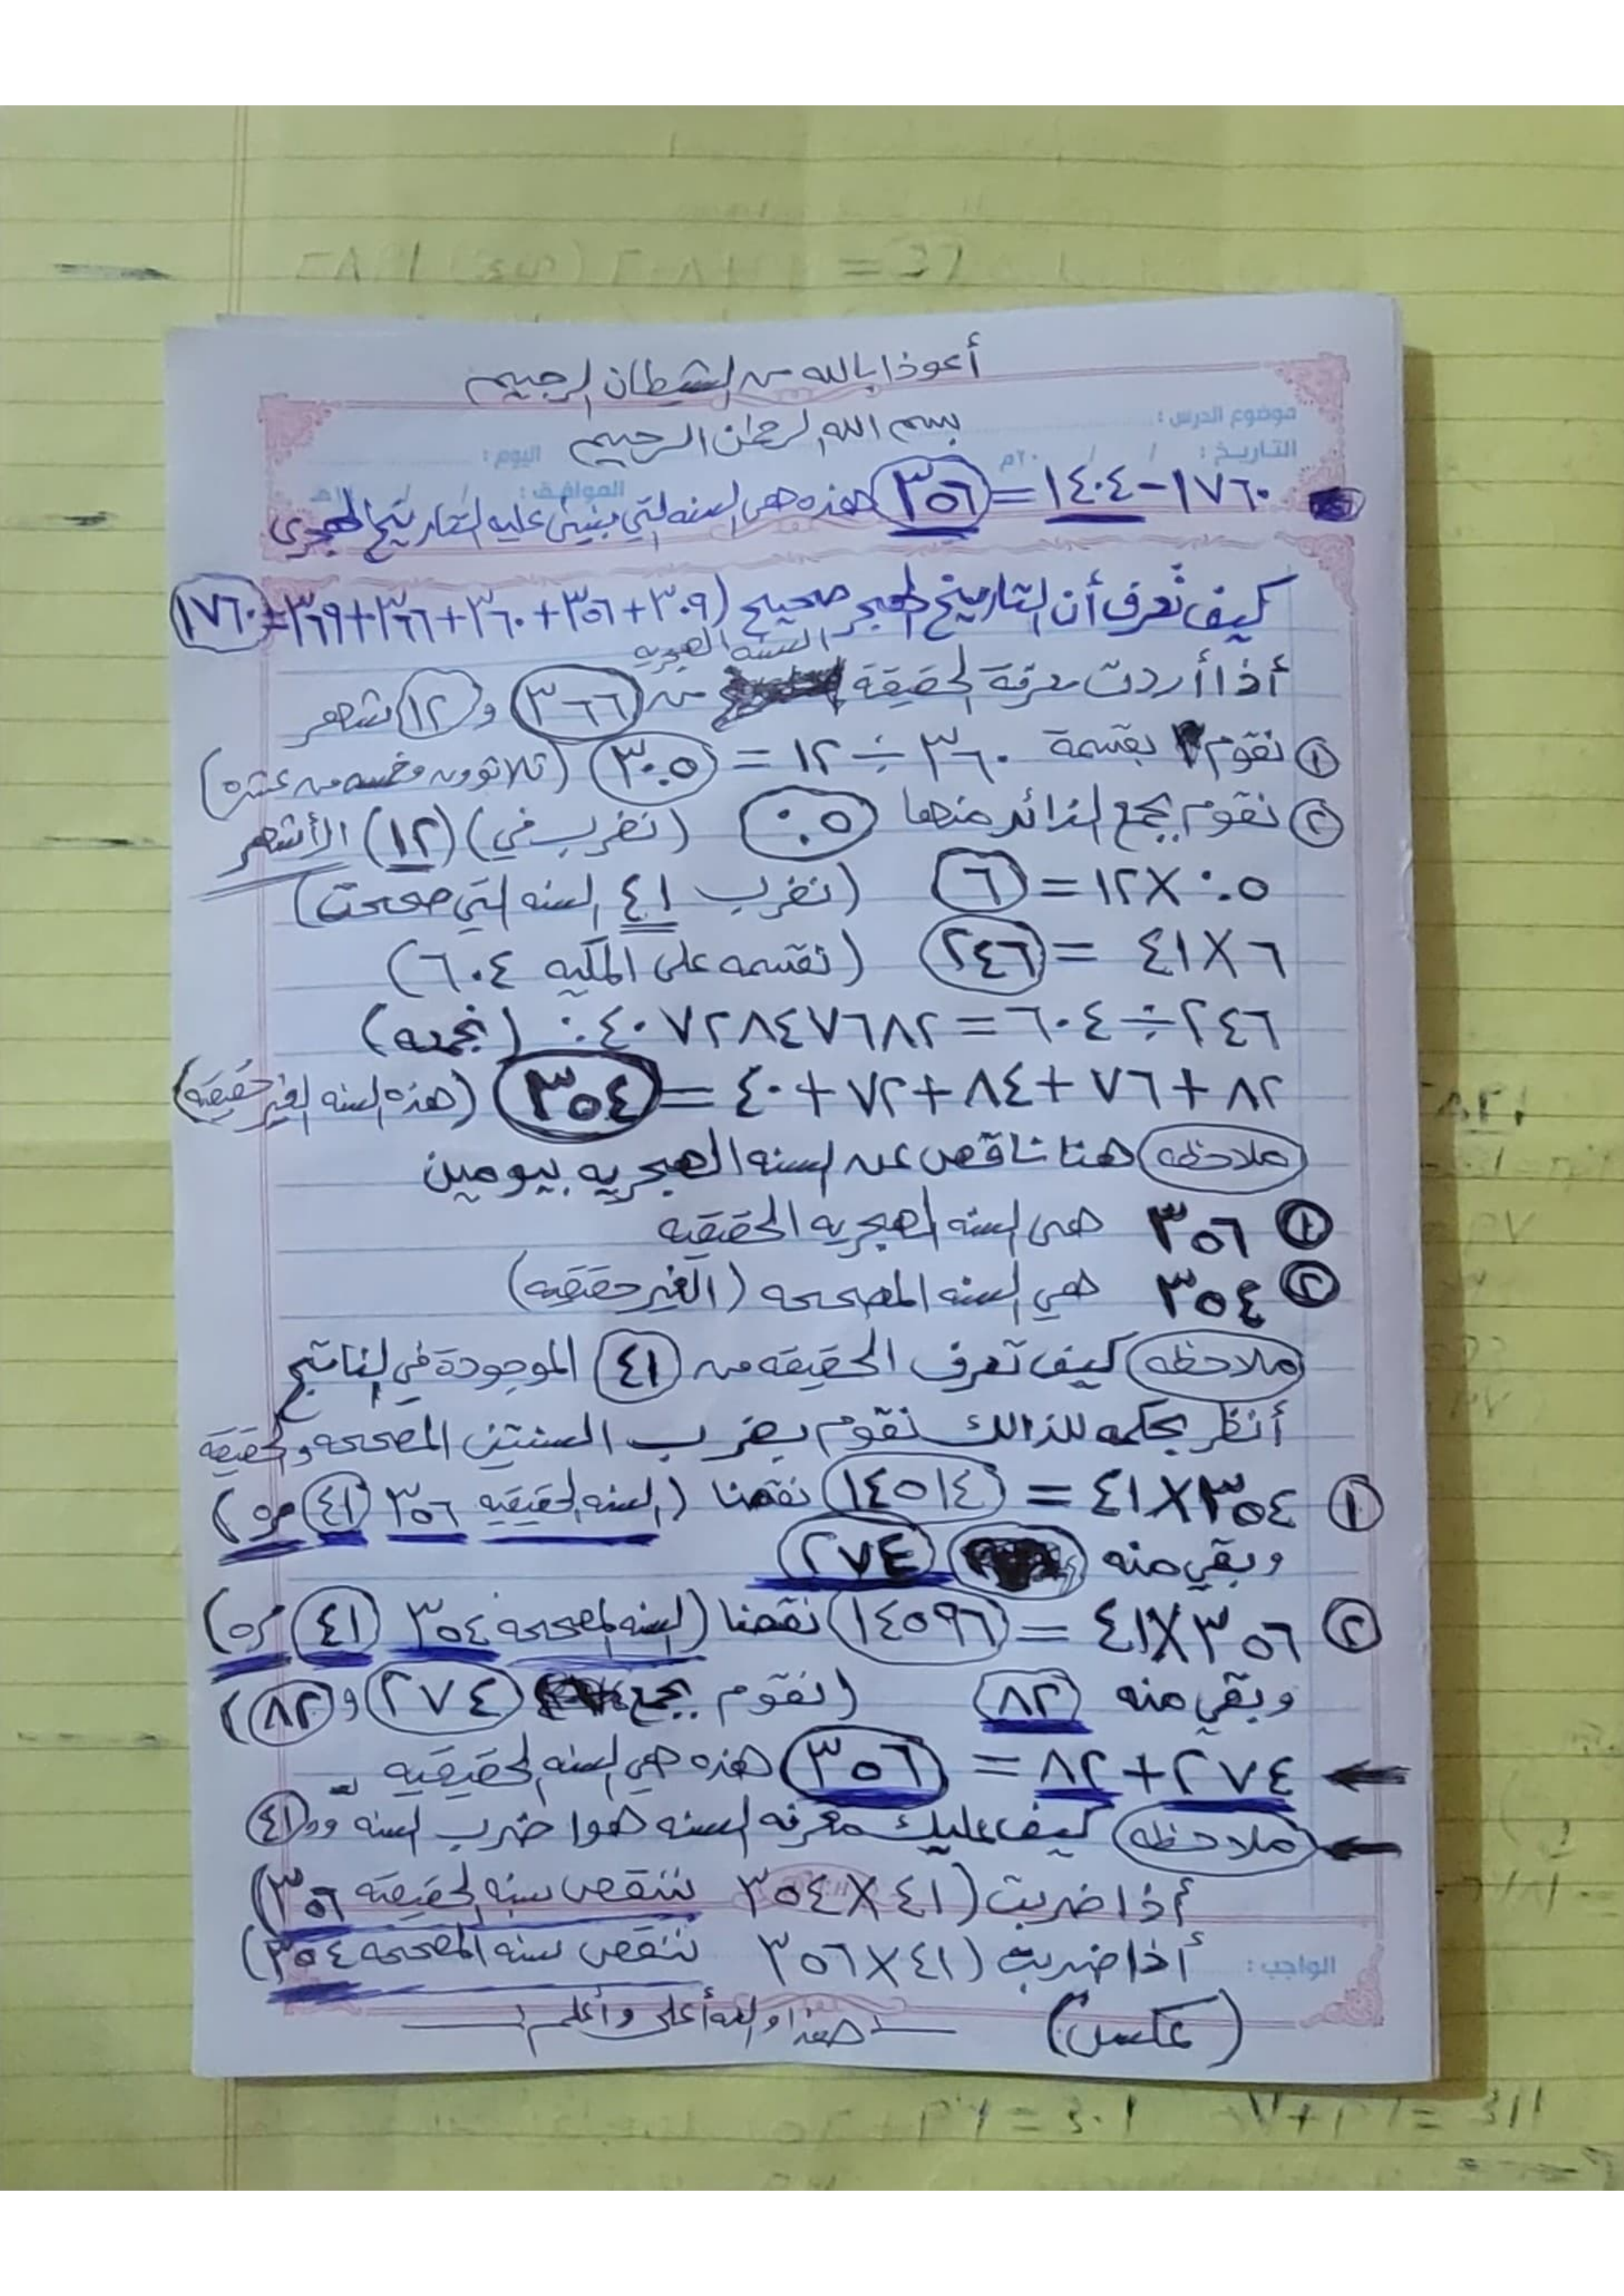 أعوذ بالله من الشيطان الرجيم
موضوع الدرس :
بسم الله الرحمن الرحيم
التاريخ : / / ٢٠م اليوم :
الموافق : / / ١٤هـ
١٧٦٠-١٤٠٤=٣٥٦ هذه هي السنه التي ينبني عليه التاريخ الهجري
كيف تعرف أن التاريخ الهجر صحيح (٣٠٩+٣٥٦+٣٦٠+٣٦٦+٣٦٩=١٧٦٠
السنه الهجريه
أذا أردت معرفة الحقيقة من ٣٦٦ و ١٢ شهر
١ نقوم بقسمة ٣٦٠÷١٢=٣٠.٥ (ثلاثوون وخمسه من عشره)
٢ نقوم بجمع الزائد منها ٠.٥ (نضرب في) (١٢) الأشهر
٠.٥×١٢=٦ (نضرب ٤١ السنه التي صححت)
٦×٤١=٢٤٦ (نقسمه على المكيه ٦٠٤)
٢٤٦÷٦٠٤=٠.٤٠٧٢٨٤٧٦٨٢ (نجمعه)
٨٢+٧٦+٨٤+٧٢+٤٠=٣٥٤ (هذه السنه الغير حقيقيه)
ملاحظه هنا ناقص عن السنه الهجريه بيومين
١ ٣٥٦ هي السنه الهجريه الحقيقيه
٢ ٣٥٤ هي السنه المصححه (الغير حقيقيه)
ملاحظه كيف تعرف الحقيقه من ٤١ الموجودة في الناتج
أنظر بحكمه للذالك نقوم بضرب السنتين المصححه والحقيقيه
١ ٣٥٤×٤١=١٤٥١٤ نقصنا (السنه الحقيقيه ٣٥٦ ٤١ مره)
وبقي منه ٢٧٤
٢ ٣٥٦×٤١=١٤٥٩٦ نقصنا (السنه المصححه ٣٥٤ ٤١ مره)
وبقي منه ٨٢ (نقوم بجمع ٢٧٤ و ٨٢)
٢٧٤+٨٢=٣٥٦ هذه هي السنه الحقيقيه
ملاحظه كيف عليك معرفه السنه هوا ضرب السنه و ٤١
أذا ضربت (٤١×٣٥٤ ننقص سنه الحقيقيه ٣٥٦)
أذا ضربت (٤١×٣٥٦ ننقص سنه المصححه ٣٥٤)
الواجب :
(عكس) هذا والله أعلى وأعلم